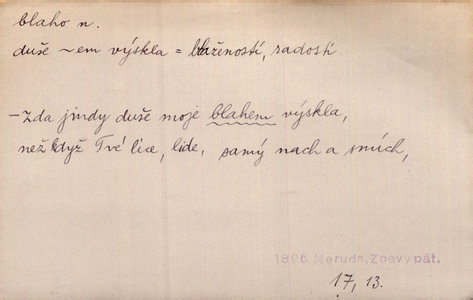 blaho n.
duše ~em výskla = blažeností, radostí
– Zda jindy duše moje blahem výskla,
než když Tvé líce, lide, samý nach a smích,
1896 Neruda, Zpěvy pát.
17, 13.